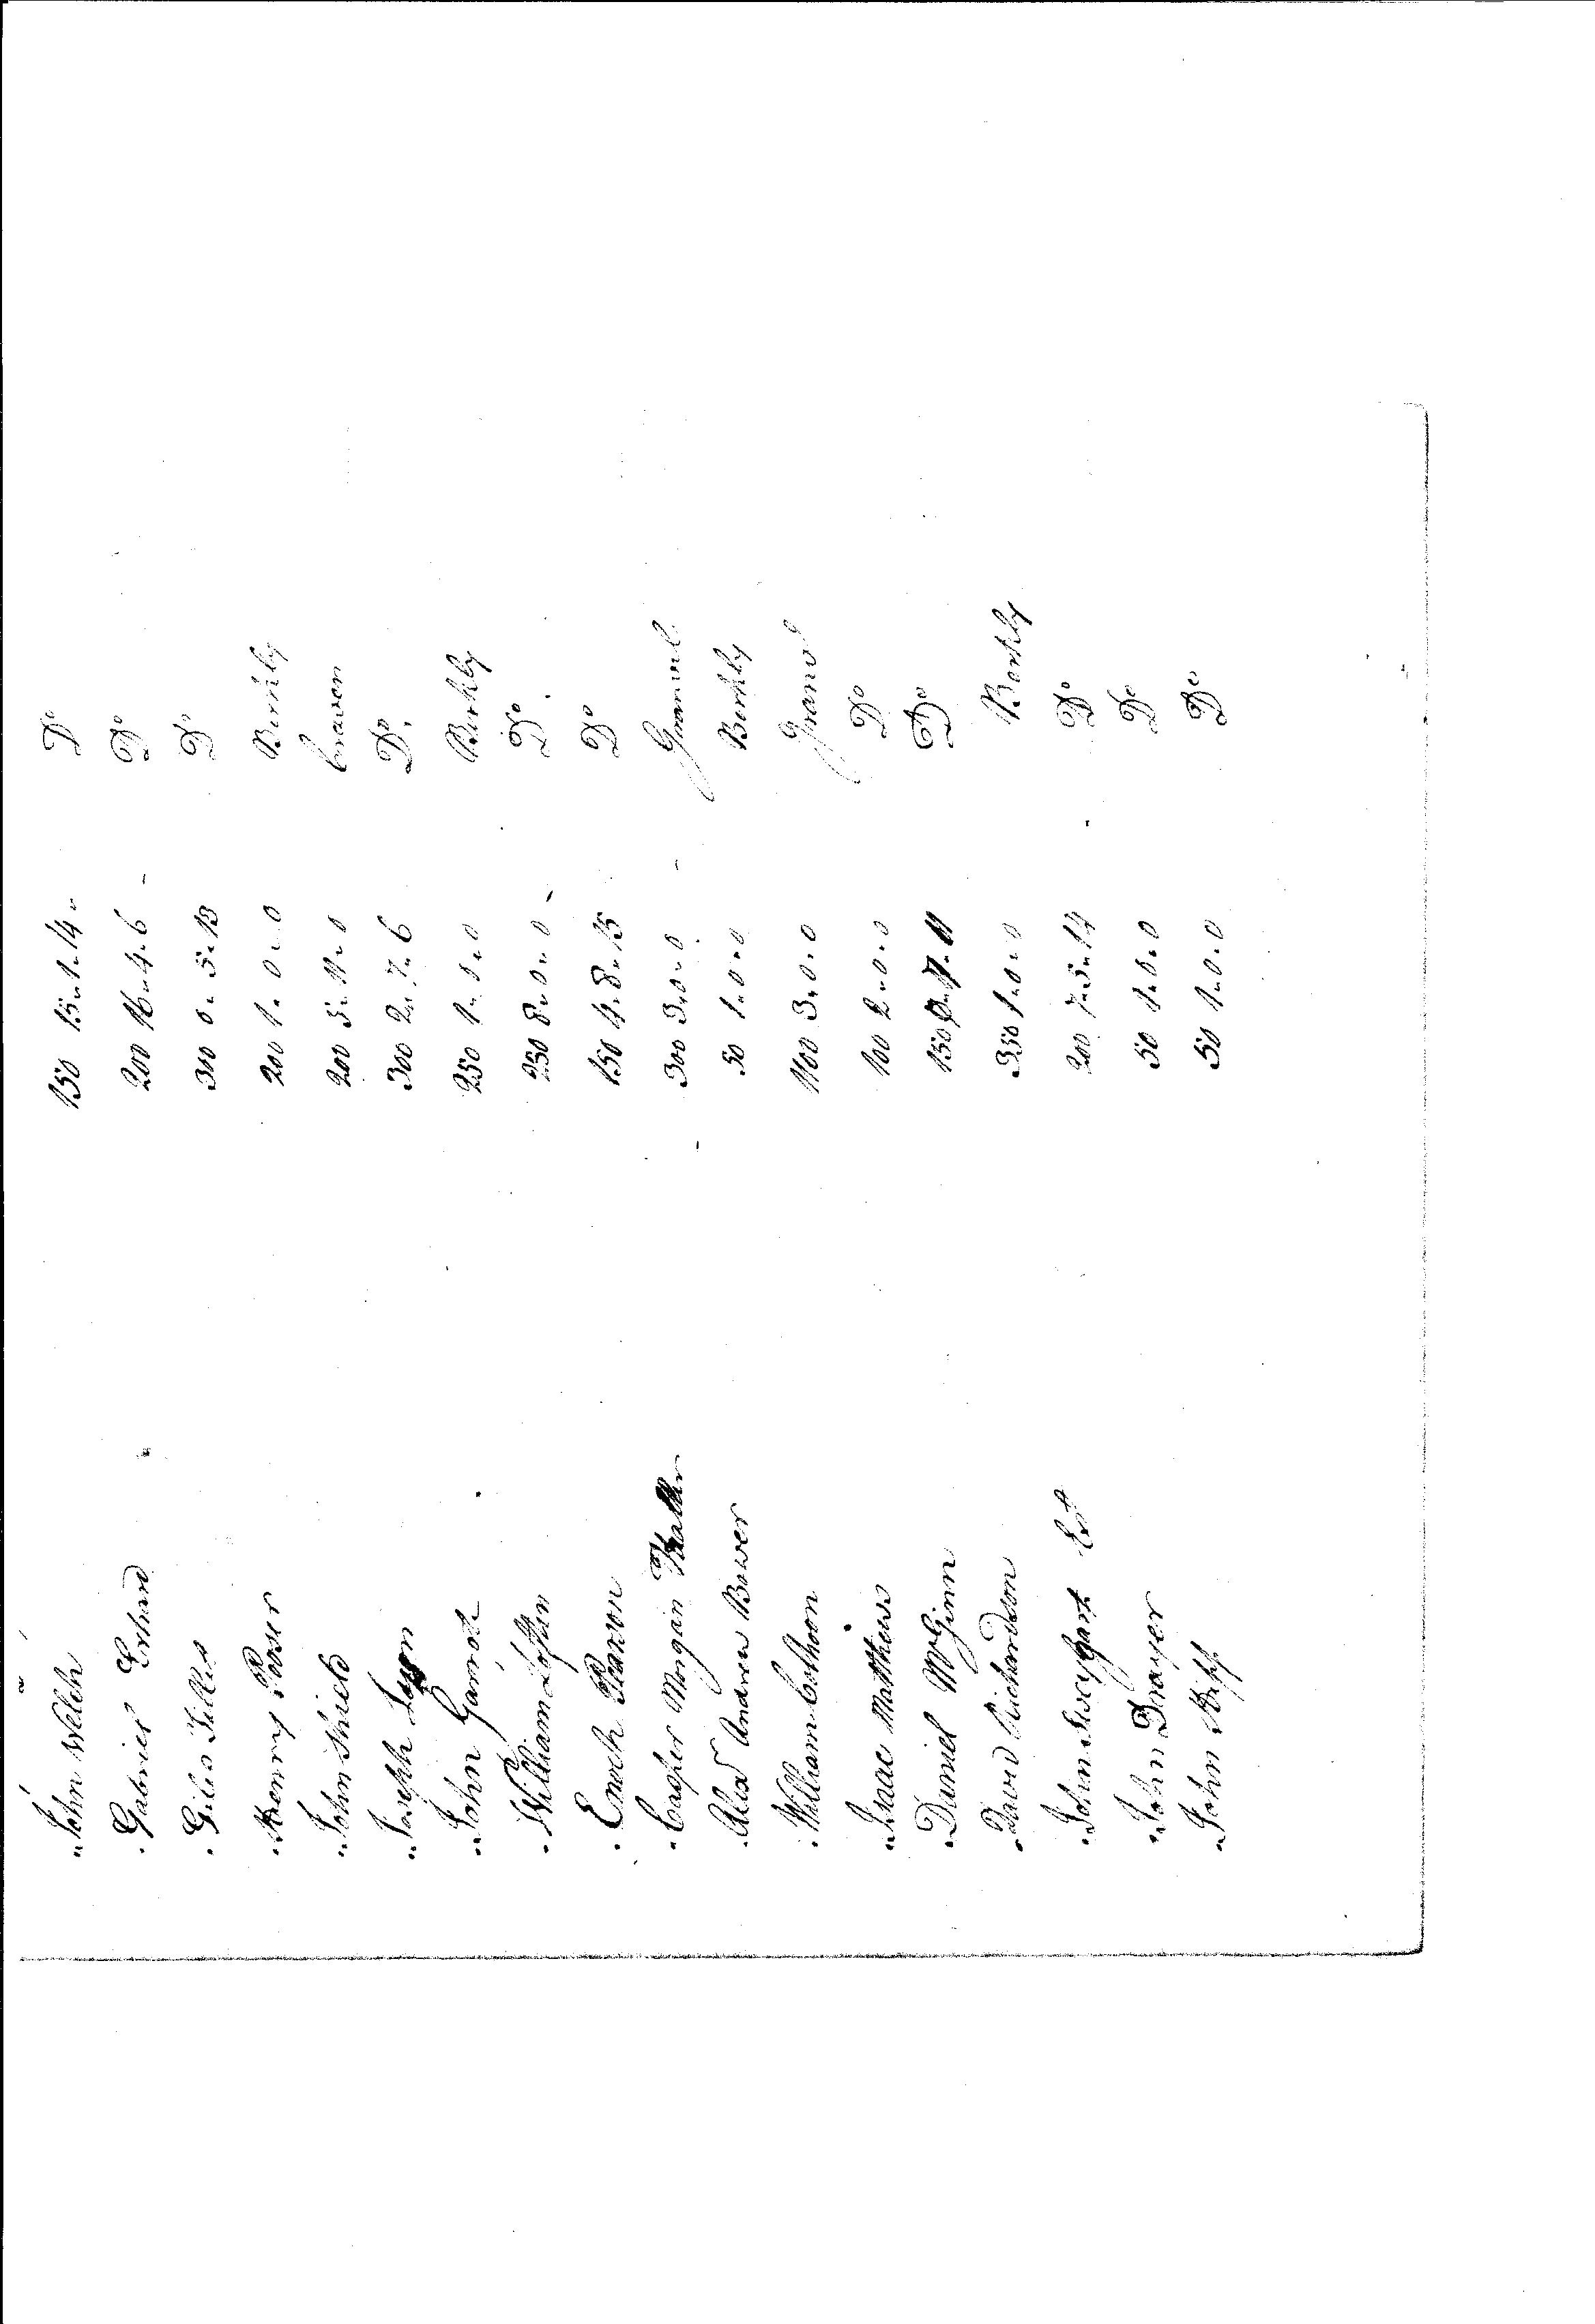 John Welch 150 15.. 1.. 14.. Do
Gabriel Erhard 200 16.. 4.. 6 Do
Giles Tillet 300 0.. 5.. 13 Do
Henry Pooser 200 1.. 0.. 0 Berkly
John Shield 200 5.. 11.. 0 Craven
Joseph 300 2.. 7.. 6 Do
John 250 1.. 0.. 0 Berkly
William Loften 250 8.. 0.. 0 Do
Enoch Pearson 150 4.. 8.. 15 Do
Casper Morgan 300 3.. 0.. 0
Alexr Andrew Bower 50 1.. 0.. 0 Berkly
William Colhoon 400 3.. 0.. 0
Isaac Matthews 100 2.. 0.. 0 Do
Daniel McGinn 150 Do
David Richardson 350 1.. 0.. 0 Berkly
John Swegart Est 200 7.. 5.. 14 Do
John Drayer 50 1.. 0.. 0 Do
John 50 1.. 0.. 0 Do